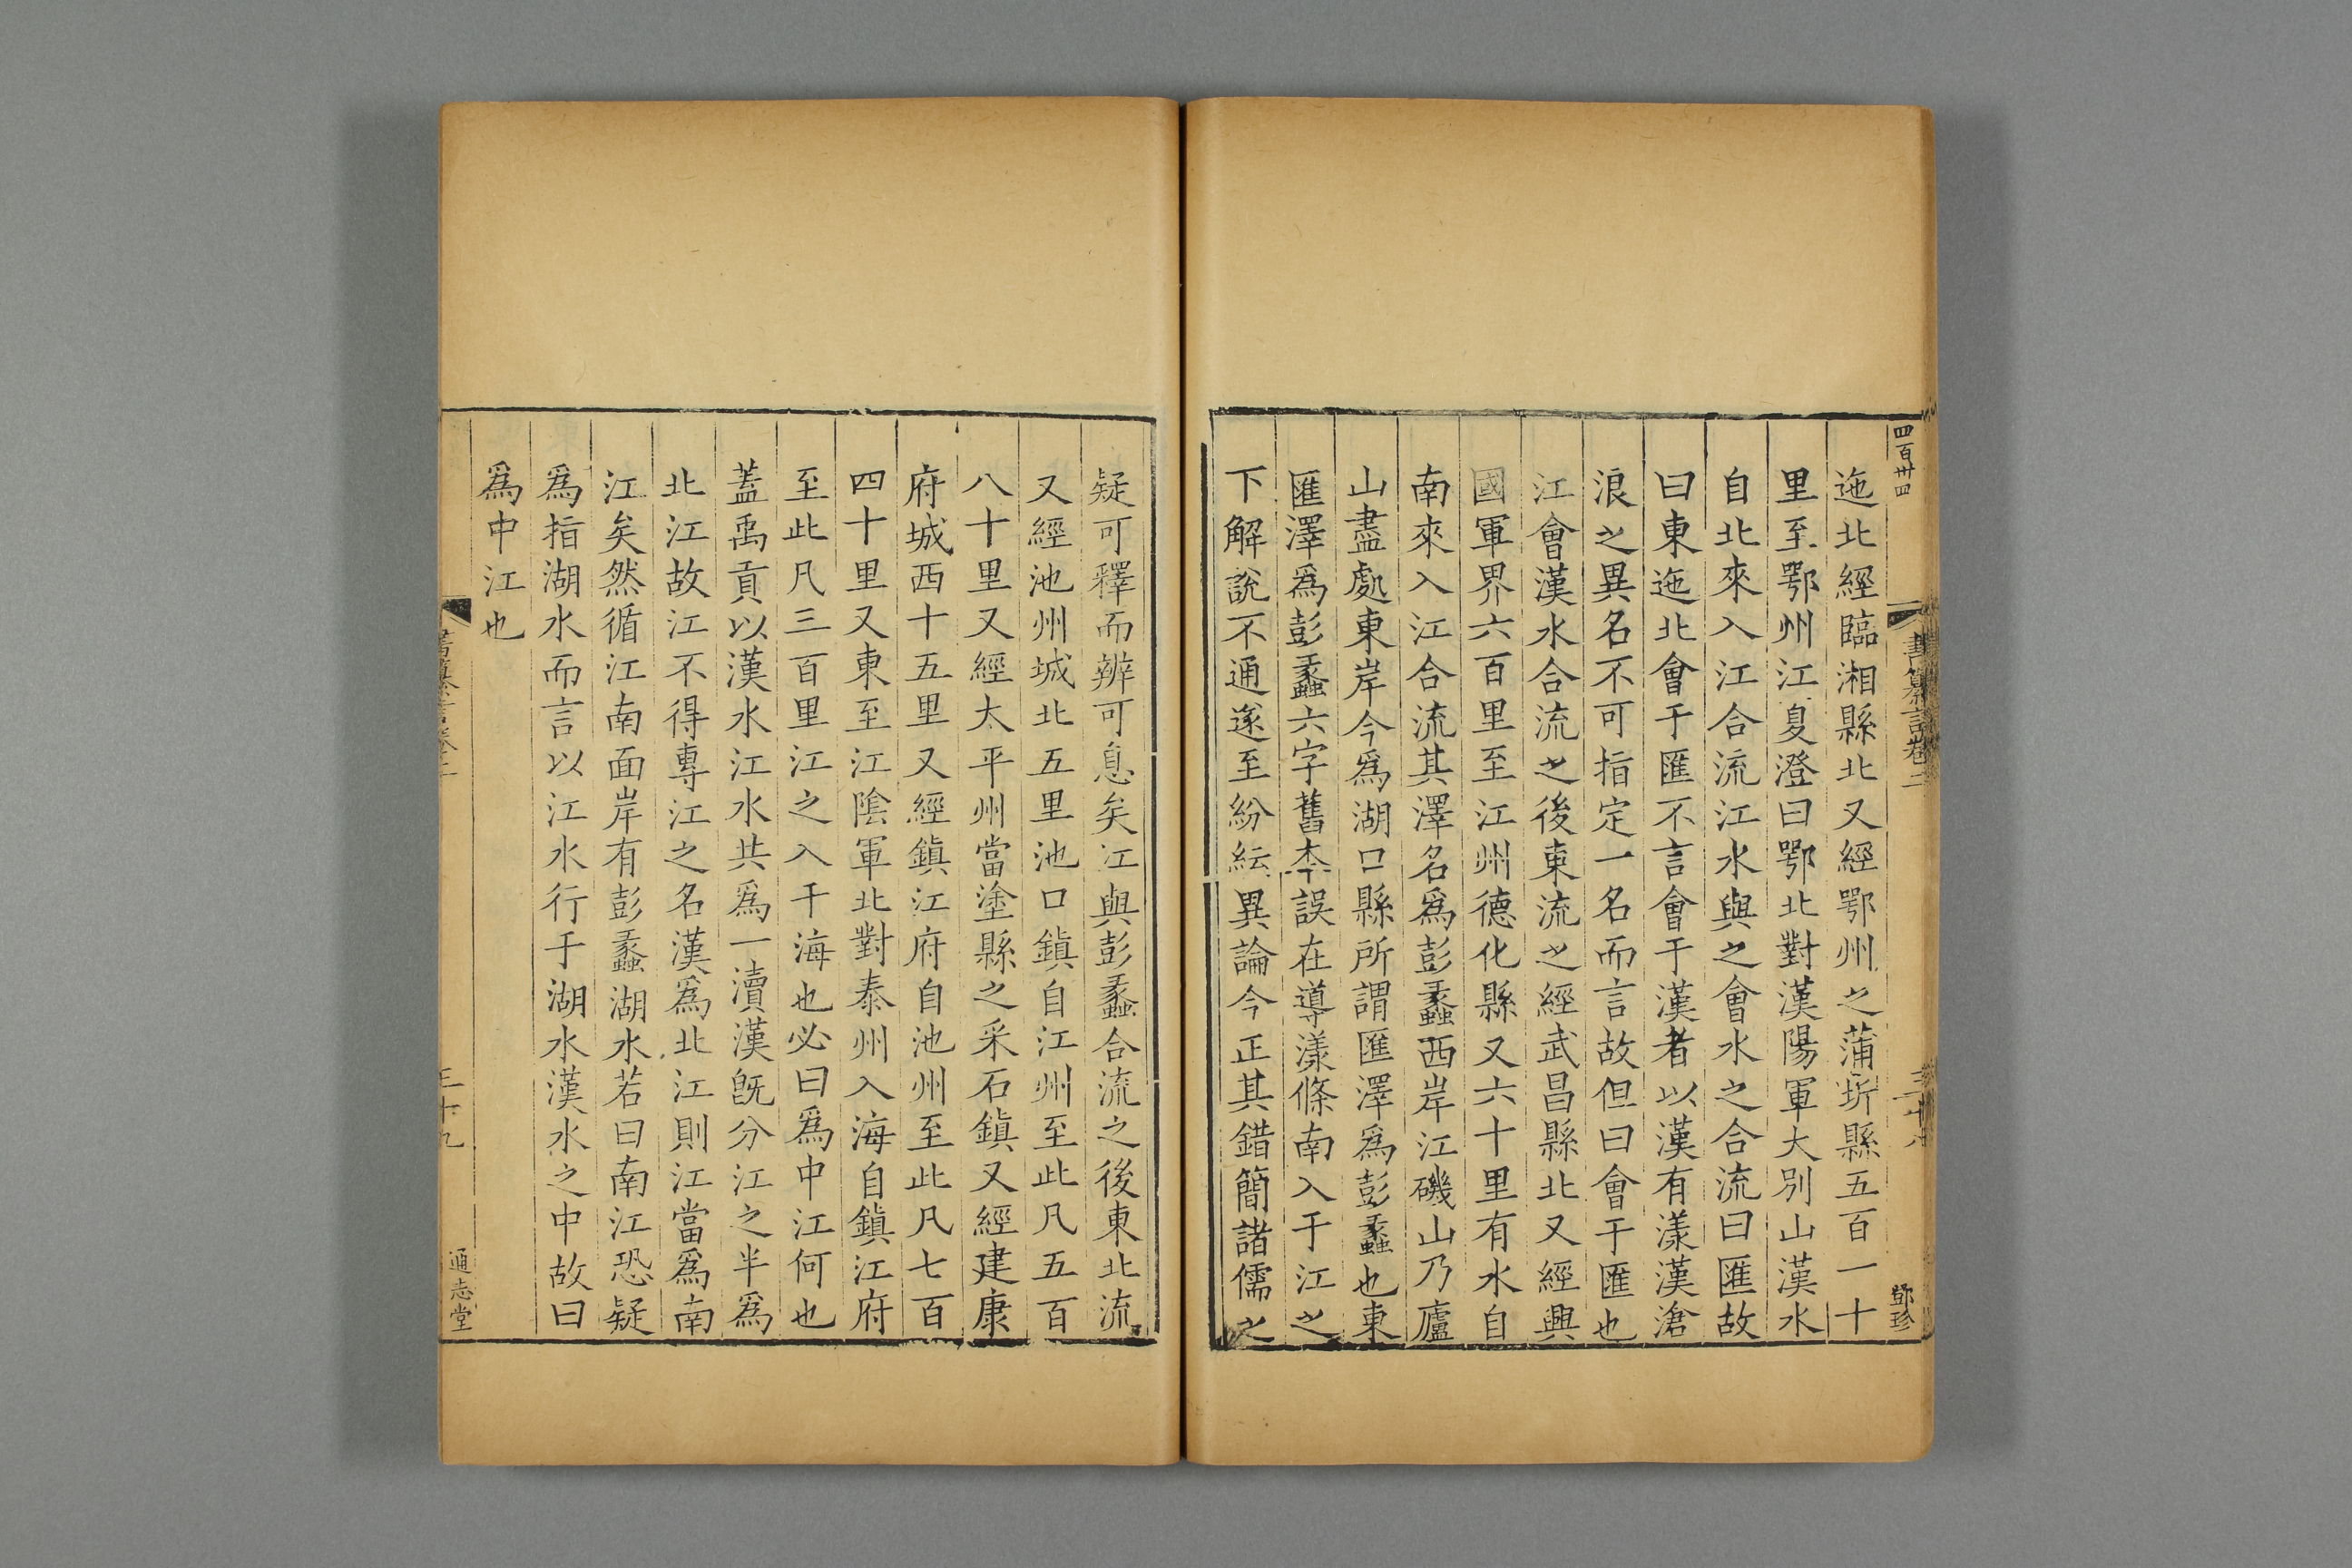 四百卅四
書纂言卷二
三十八
鄧珍
迤北經臨湘縣北又經鄂州之蒲圻縣五百一十
里至鄂州江夏澄曰鄂北對漢陽軍大別山漢水
自北來入江合流江水與之會水之合流曰匯故
曰東迤北會于匯不言會于漢者以漢有漾漢滄
浪之異名不可指定一名而言故但曰會于匯也
江會漢水合流之後東流之經武昌縣北又經興
國軍界六百里至江州德化縣又六十里有水自
南來入江合流其澤名爲彭蠡西岸江磯山乃廬
山盡處東岸今爲湖口縣所謂匯澤爲彭蠡也東
匯澤爲彭蠡六字舊本誤在導漾條南入于江之
下解說不通遂至紛紜異論今正其錯簡諸儒之
疑可釋而辨可息矣江與彭蠡合流之後東北流
又經池州城北五里池口鎮自江州至此凡五百
八十里又經太平州當塗縣之采石鎮又經建康
府城西十五里又經鎮江府自池州至此凡七百
四十里又東至江陰軍北對泰州入海自鎮江府
至此凡三百里江之入于海也必曰爲中江何也
蓋禹貢以漢水江水共爲一瀆漢旣分江之半爲
北江故江不得專江之名漢爲北江則江當爲南
江矣然循江南面岸有彭蠡湖水若曰南江恐疑
爲指湖水而言以江水行于湖水漢水之中故曰
爲中江也
三十九
通志堂